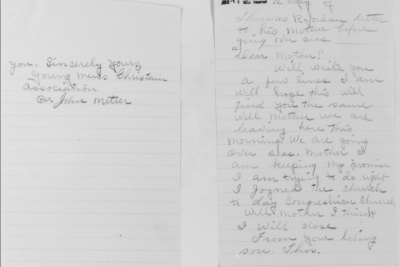 you. Sincerely Yours,
Young Mens Christain
Association
Per. John Metler
a copy of
Thomas letter
to his Mother before
going over seas.
Dear Mother!
Will Write you
a few lines I am
Well hope this will
find you the same
Well Mother we are
leaving here this
Morning We are going
over seas. Mother I
am keeping My promise
I am trying to do right
I Joyned the Church
to day Congreshion Church
Well Mother I think
I Will close
From your loving
son Thos.